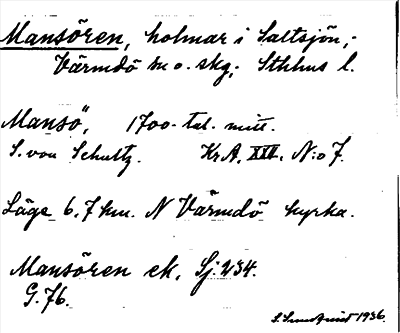 Mansören, holmar i Saltsjön,-
Värmdö sn o. skg; Sthlms l.
Mansö, 1700-tal. mitt.
S. von Schultz. Kr.A. XIII. N:o 7.
Läge 6,7 km. N Värmdö kyrka.
Mansören ek. Sj. 234.
G. 76.
1936.